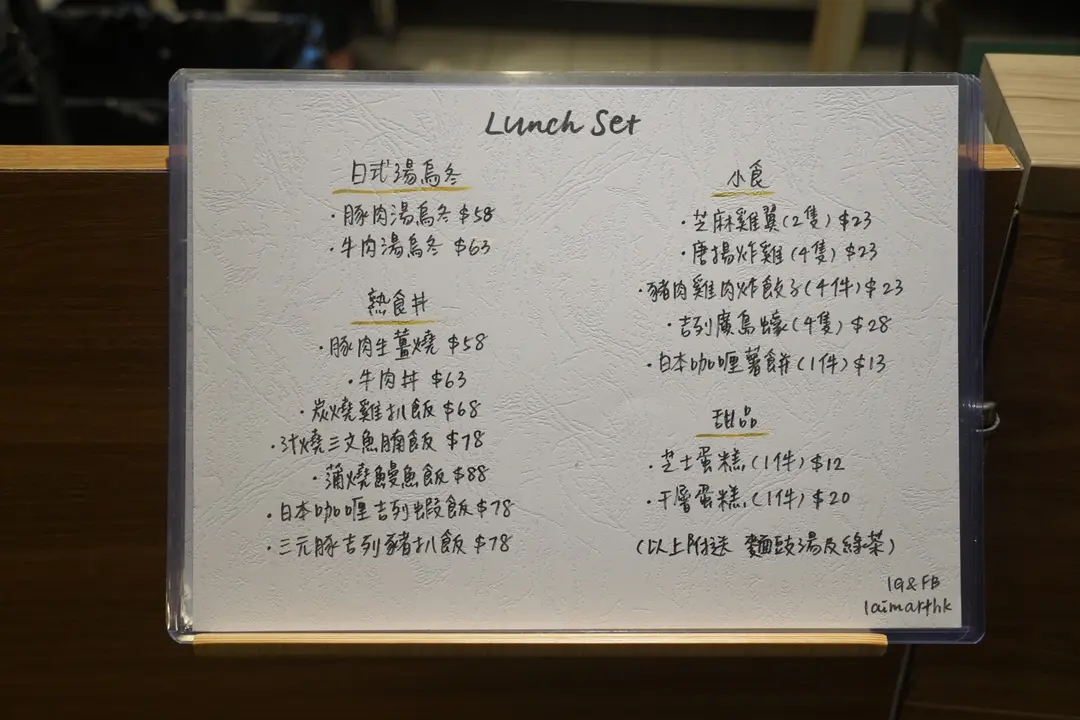 Lunch Set
日式湯烏冬
·豚肉湯烏冬 $58
·牛肉湯烏冬 $63
熱食丼
·豚肉生薑燒 $58
·牛肉丼 $63
·炭燒雞扒飯 $68
·汁燒三文魚腩飯 $78
·蒲燒鰻魚飯 $88
·日本咖喱吉列蝦飯 $78
·三元豚吉列豬扒飯 $78
小食
·芝麻雞翼(2隻) $23
·唐揚炸雞(4隻) $23
·豬肉雞肉炸餃子(4件) $23
·吉列廣島蠔(4隻) $28
·日本咖喱薯餅(1件) $13
甜品
·芝士蛋糕(1件) $12
·千層蛋糕(1件) $20
(以上附送 麵豉湯及綠茶)
IG&FB
laimarthk